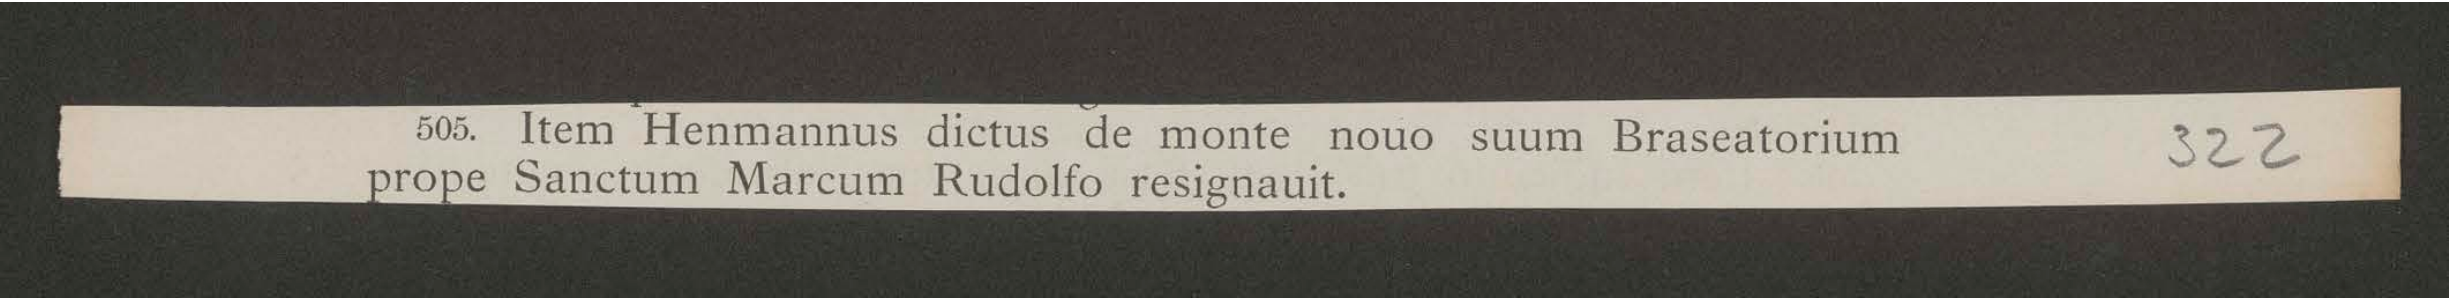 505. Item Henmannus dictus de monte nouo suum Braseatorium 322
prope Sanctum Marcum Rudolfo resignauit.